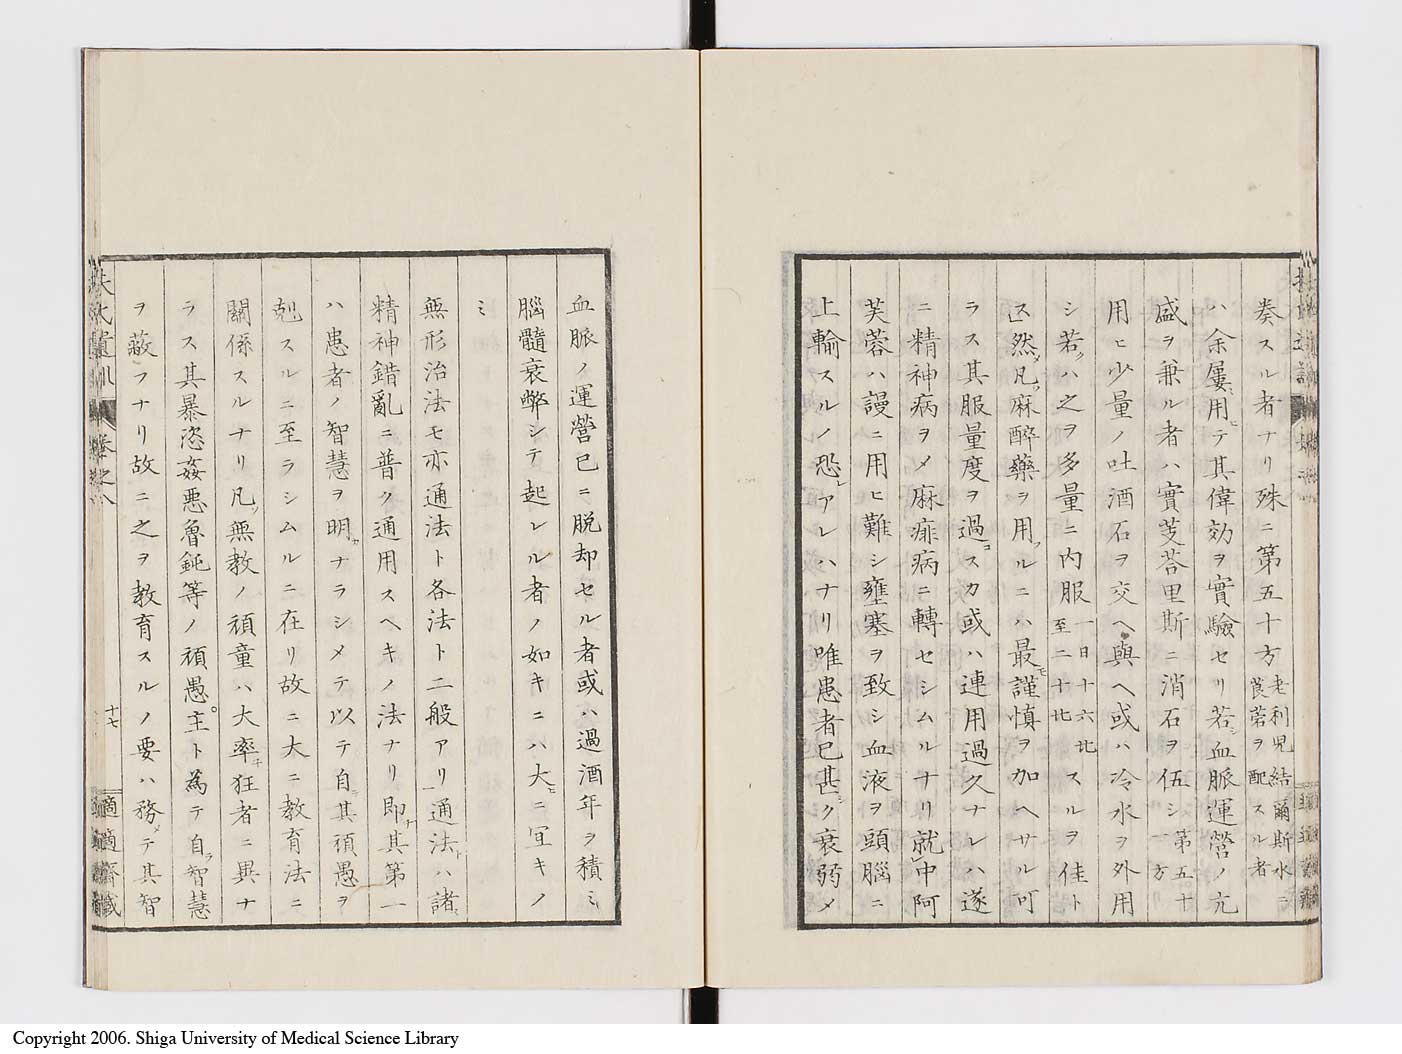 奏スル者ナリ殊ニ第五十方老利児結爾斯水ニ莨菪ヲ配スル者
ハ余屢用ヒテ其偉効ヲ實驗セリ若シ血脈運營ノ亢
盛ヲ兼ル者ハ實芰荅里斯ニ消石ヲ伍シ第五十一方
用ヒ少量ノ吐酒石ヲ交ヘ與ヘ或ハ冷水ヲ外用
シ若クハ之ヲ多量ニ内服一日十六氿至二十氿スルヲ佳ト
ス然メ凡ソ麻醉藥ヲ用フルニハ最モ謹慎ヲ加ヘサル可
ラス其服量度ヲ過コスカ或ハ連用過久ナレハ遂
ニ精神病ヲメ麻痱病ニ轉セシムルナリ就中阿
芙蓉ハ謾ニ用ヒ難シ壅塞ヲ致シ血液ヲ頭腦ニ
上輸スルノ恐レアレハナリ唯患者已甚シク衰弱メ
血脈ノ運營已ニ脱却セル者或ハ過酒年ヲ積ミ
腦髓衰弊シテ起レル者ノ如キニハ大ニ宜キノ
ミ
無形治法モ亦通法ト各法ト二般アリ通法トハ諸
精神錯亂ニ普ク通用スヘキノ法ナリ即チ其第一
ハ患者ノ智慧ヲ明カナラシメテ以テ自ラ其頑愚ヲ
剋スルニ至ラシムルニ在リ故ニ大ニ教育法ニ
關係スルナリ凡ソ無教ノ頑童ハ大率子狂者ニ異ナ
ラス其暴恣姦惡魯鈍等ノ頑愚主ト為テ自ラ智慧
ヲ蔽フナリ故ニ之ヲ教育スルノ要ハ務メテ其智
扶氏遺訓 卷之八
十七
適適齋藏
Copyright 2006. Shiga University of Medical Science Library